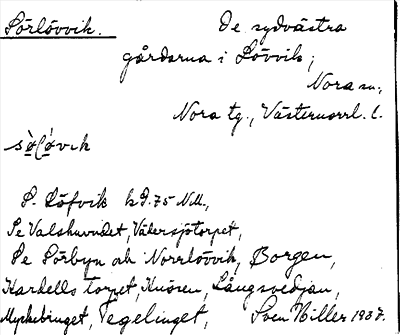 Sörlövvik. De sydvästra
gårdarna i Lövvik;
Nora sn.,
Nora tg., Västernorrl. l.
sø̀ḷø´vɩk
S. Löfvik
Se Valshuvudet, Vätersjötorpet,
Se Sörbyn och Norrlövvik, Borgen,
Kardells torpet, Knösen, Långsvedjan,
Myckebruget, Tegelinget, Sven Hiller 1937.